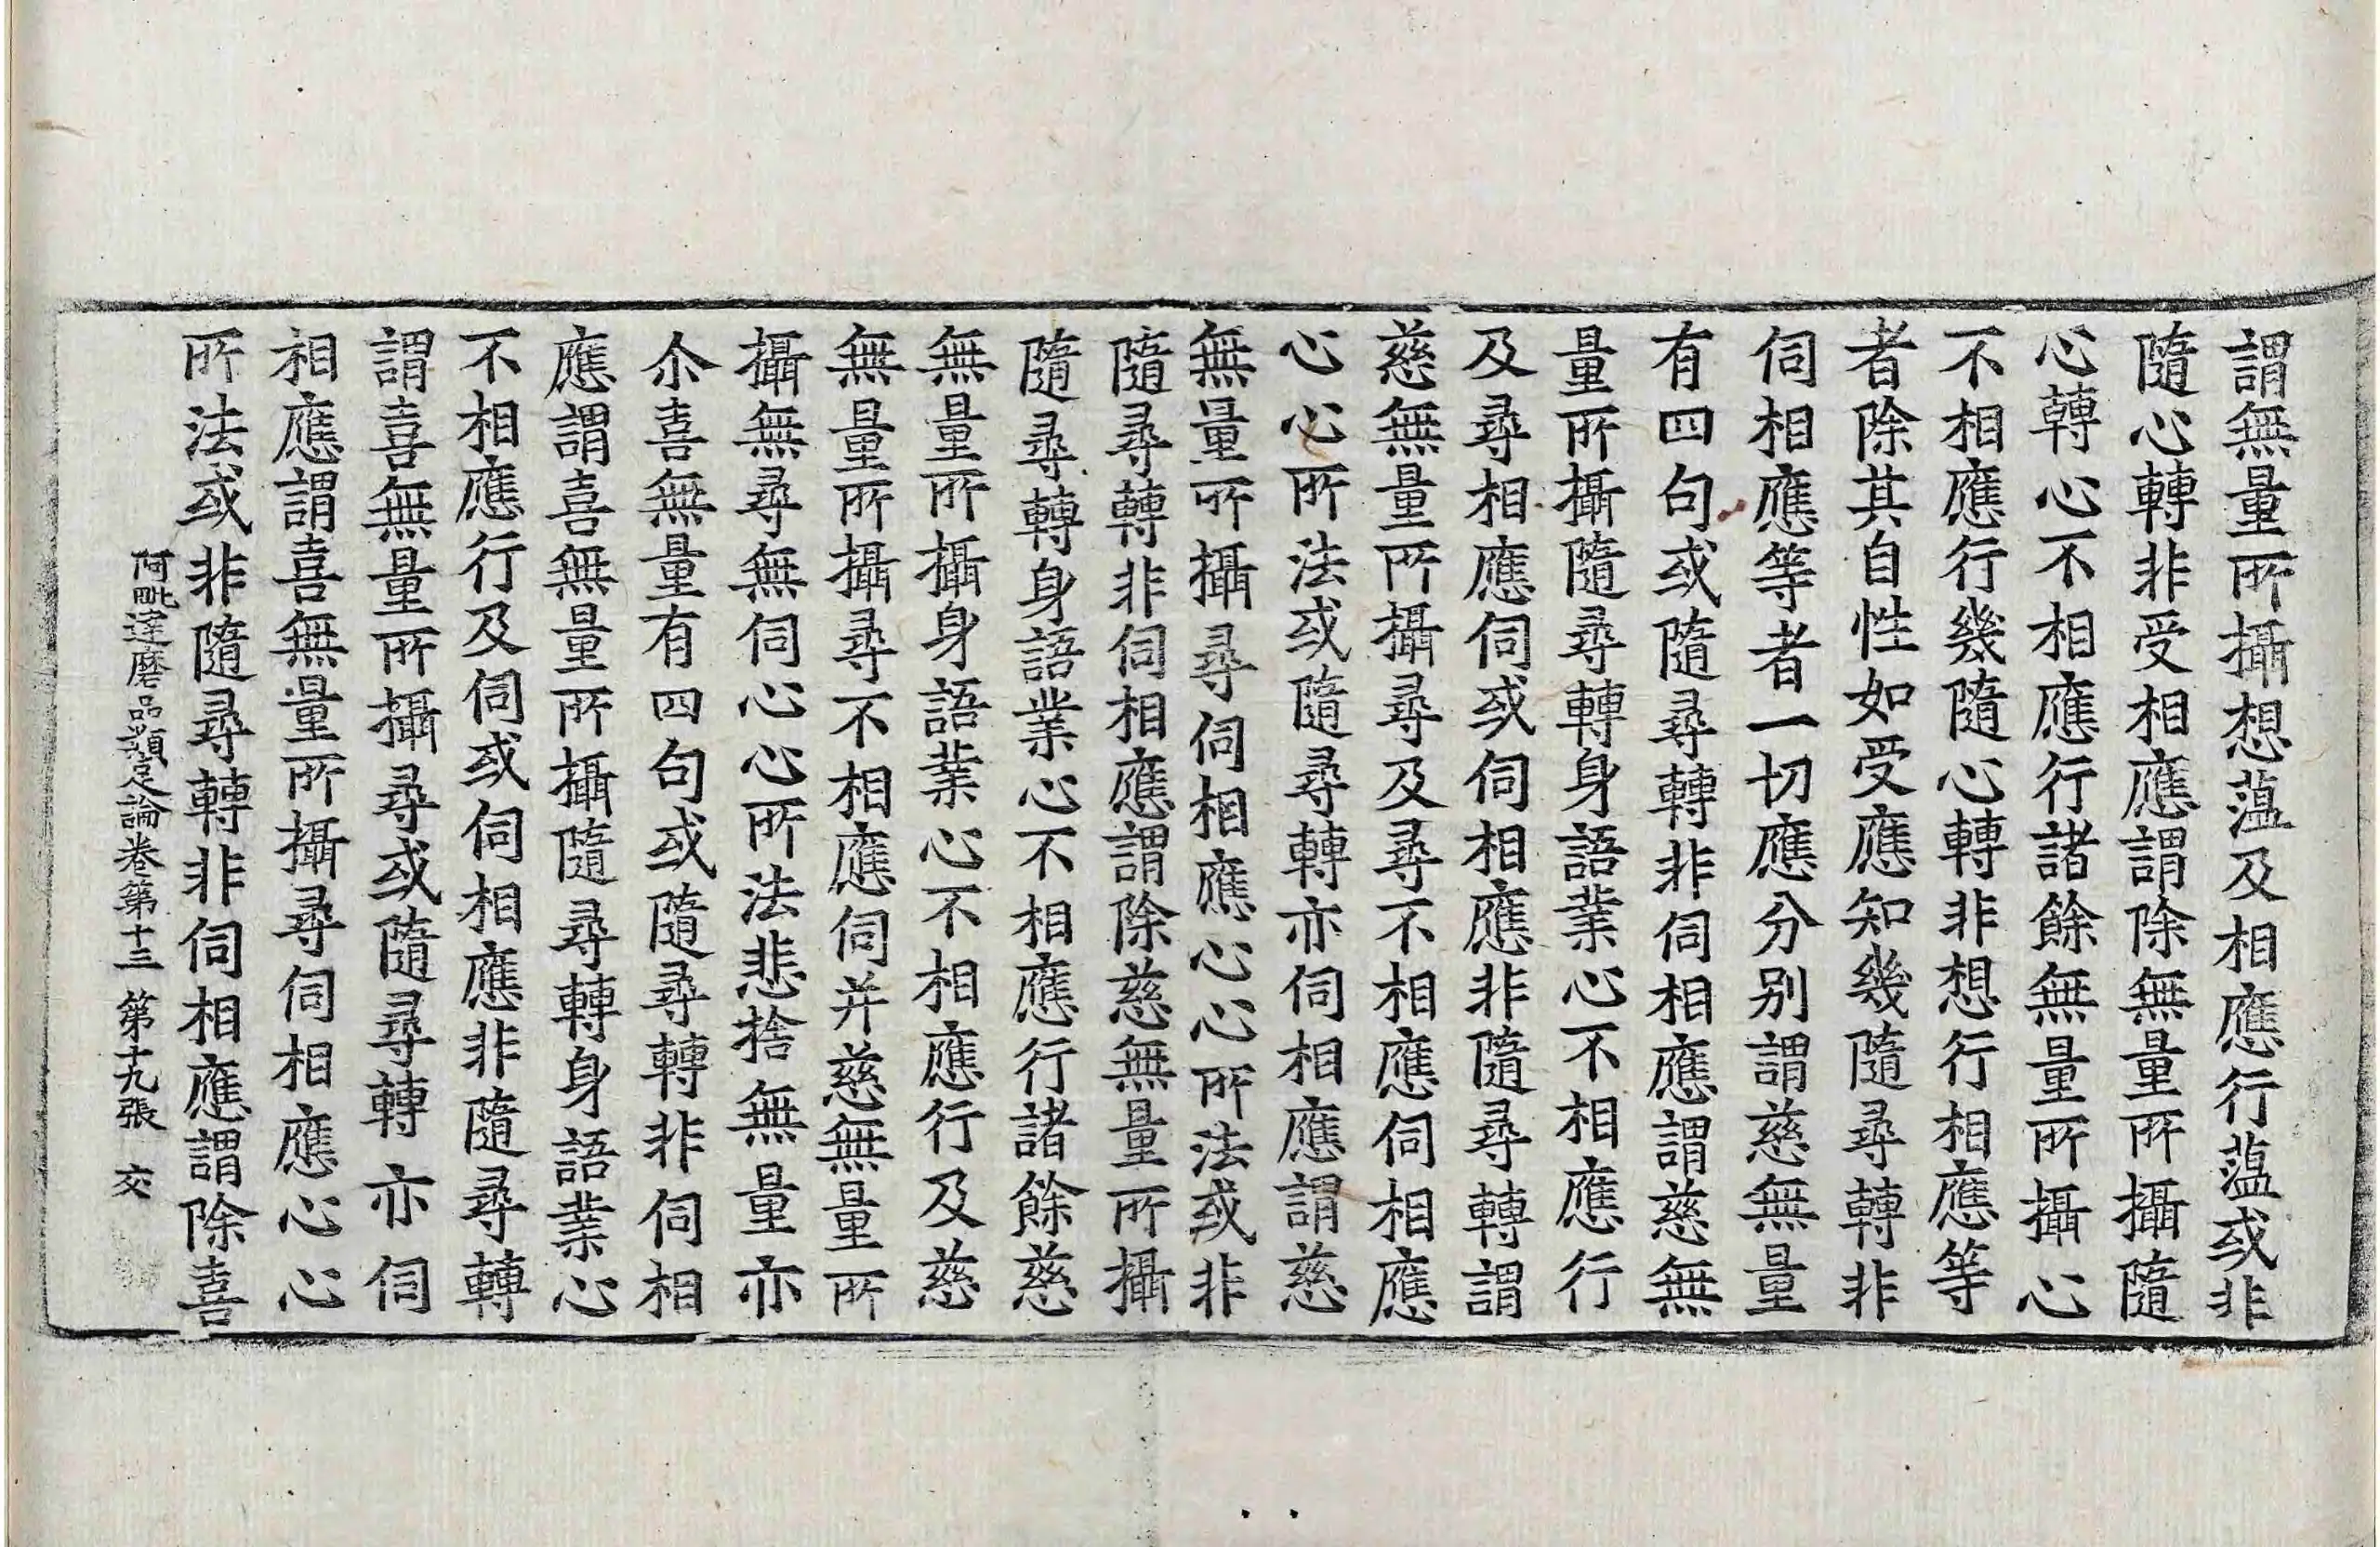 謂無量所攝想薀及相應行薀或非
隨心轉非受相應謂除無量所攝隨
心轉心不相應行諸餘無量所攝心
不相應行幾隨心轉非想行相應等
者除其自性如受應知幾隨尋轉非
伺相應等者一切應分別謂慈無量
有四句或隨尋轉非伺相應謂慈無
量所攝隨尋轉身語業心不相應行
及尋相應伺或伺相應非隨尋轉謂
慈無量所攝尋及尋不相應伺相應
心心所法或隨尋轉亦伺相應謂慈
無量所攝尋伺相應心心所法或非
隨尋轉非伺相應謂除慈無量所攝
隨尋轉身語業心不相應行諸餘慈
無量所攝身語業心不相應行及慈
無量所攝尋不相應伺并慈無量所
攝無尋無伺心心所法悲捨無量亦
尒喜無量有四句或隨尋轉非伺相
應謂喜無量所攝隨尋轉身語業心
不相應行及伺或伺相應非隨尋轉
謂喜無量所攝尋或隨尋轉亦伺
相應謂喜無量所攝尋伺相應心心
所法或非隨尋轉非伺相應謂除喜
阿毗達磨品類足論卷第十三 第十九張 交